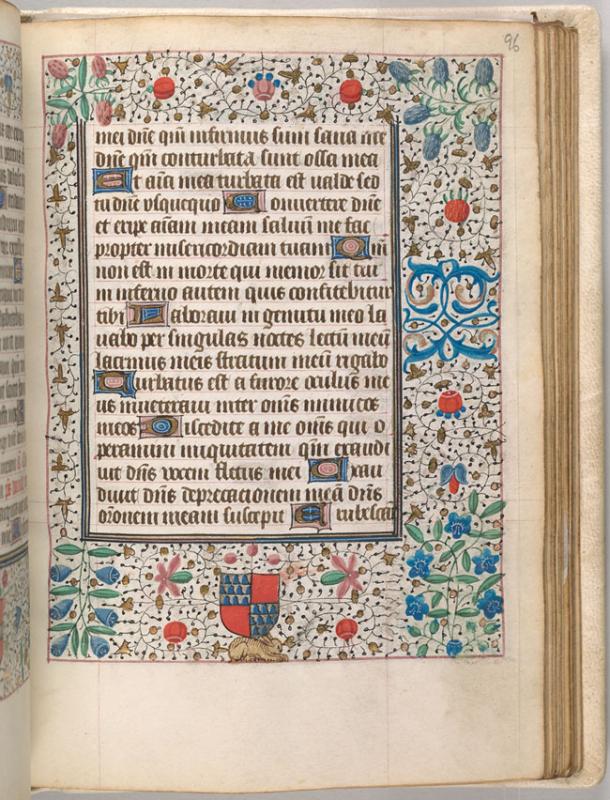 96
mei dñe qm̃ infirmus sum sana me
dñe qm̃ conturbata sunt ossa mea
Et aĩa mea turbata est ualde sed
tu dñe vsquequo Conuertere dñe
et eripe aĩam meam saluũ me fac
propter misericordiam tuam Qm̃
non est in morte qui memor sit tui
in inferno autem quis confitebitur
tibi Laboraui in gemitu meo la
uabo per singulas noctes lectũ meũ
lacrimis meis stratum meũ rigabo
Turbatus est a furore oculus me
us inueteraui inter oĩnes inimicos
meos Discedite a me oĩnes qui o
peramini iniquitatem qm̃ exaudi
uit dñs vocem fletus mei Exau
diuit dñs deprecacionem meã dñs
orõnem meam suscepit Erubescãt